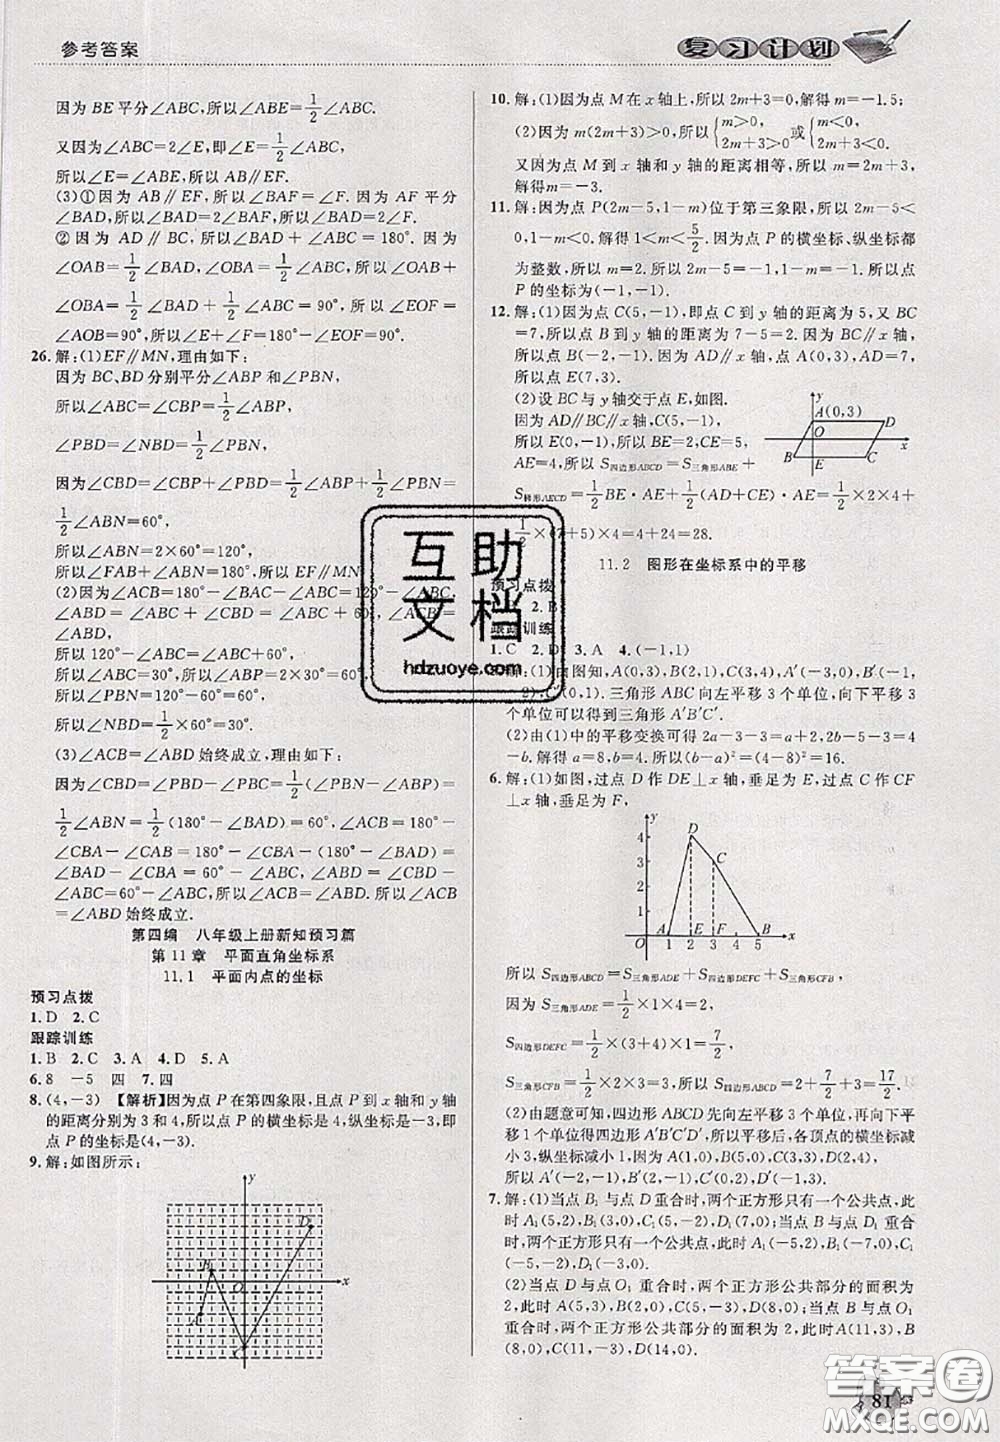 参考答案
复习计划
因为BE平分∠ABC,所以∠ABE=1/2∠ABC.
又因为∠ABC=2∠E,即∠E=1/2∠ABC,
所以∠E=∠ABE,所以AB∥EF.
(3)①因为AB∥EF,所以∠BAF=∠F.因为AF平分
∠BAD,所以∠BAD=2∠BAF,所以∠BAD=2∠F.
②因为AD∥BC,所以∠BAD+∠ABC=180°.因为
∠OAB=1/2∠BAD,∠OBA=1/2∠ABC,所以∠OAB+
∠OBA=1/2∠BAD+1/2∠ABC=90°,所以∠EOF=
∠AOB=90°,所以∠E+∠F=180°-∠EOF=90°.
26.解:(1)EF∥MN,理由如下:
因为BC、BD分别平分∠ABP和∠PBN,
所以∠ABC=∠CBP=1/2∠ABP,
∠PBD=∠NBD=1/2∠PBN,
因为∠CBD=∠CBP+∠PBD=1/2∠ABP+1/2∠PBN=
1/2∠ABN=60°,
所以∠ABN=2×60°=120°,
所以∠FAB+∠ABN=180°,所以EF∥MN.
(2)因为∠ACB=180°-∠BAC-∠ABC,
∠ABD=∠ABC+∠CBD=∠ABC+60°,∠ACB=
∠ABD,
所以120°-∠ABC=∠ABC+60°,
所以∠ABC=30°,所以∠ABP=2∠ABC=60°,
所以∠PBN=∠ABN-∠ABP=60°,
所以∠NBD=1/2×60°=30°.
(3)∠ACB=∠ABD始终成立,理由如下:
因为∠CBA=∠CBD-∠PBD-∠ABP=
1/2∠ABN=1/2(180°-∠BAD)=180°-
∠CBA-∠CAB=180°-(180°-∠BAD)=
∠ABC=∠BAD-∠ABC=∠CBD-
∠ABC=60°-∠ABC,所以∠ACB=∠ABD,所以
∠ACB=∠ABD始终成立.
第四编 八年级上册新知预习篇
第11章 平面直角坐标系
11.1 平面内点的坐标
预习点拨
1.D 2.C
跟踪训练
1.B 2.C 3.A 4.D 5.A
6.8 -5 四 7.四
8.(4,-3) 【解析】因为点P在第四象限,且点P到x轴和y轴
的距离分别为3和4,所以点P的横坐标是4,纵坐标是-3,即
点P的坐标是(4,-3).
9.解:如图所示:
y
D
B
O
x
A
C
10.解:(1)因为点M在x轴上,所以2m+3=0,解得m=-1.5;
(2)因为m(2m+3)>0,所以{m>0, 2m+3>0 或{m<0, 2m+3<0.
又因为点M到x轴和y轴的距离相等,所以m=2m+3,
解得m=-3.
11.解:因为点P(2m-5,1-m)位于第三象限,所以2m-5<
0,1-m<0.解得1<m<5/2.因为点P的横坐标、纵坐标都
为整数,所以m=2.所以2m-5=-1,1-m=-1.所以点
P的坐标为(-1,-1).
12.解:(1)因为点C(5,-1),即点C到y轴的距离为5,又BC
=7,所以点B到y轴的距离为7-5=2.因为BC∥x轴,
所以点B(-2,-1).因为AD∥x轴,点A(0,3),AD=7,
所以点E(7,3).
(2)设BC与y轴交于点E,如图.
因为AD∥BC∥x轴,C(5,-1),
所以E(0,-1),所以BE=2,CE=5,
AE=4,所以S四边形ABCD=S三角形ABE+
S梯形AECD=1/2BE·AE+1/2(AD+CE)·AE=1/2×2×4+
1/2×(7+5)×4=4+24=28.
y
A(0,3)
D
O
x
B
E
C
11.2 图形在坐标系中的平移
预习点拨
2.B
跟踪训练
1.C 2.D 3.A 4.(-1,1)
(1)由图知,A(0,3),B(2,1),C(3,4),A′(-3,0),
2),C′(0,1).三角形ABC向左平移3个单位,向下平移3
个单位可以得到三角形A′B′C′.
(2)由(1)中的平移变换可得2a-3-3=a+2,2b-5-3=4
-b.解得a=8,b=4.所以(b-a)²=(4-8)²=16.
6.解:(1)如图,过点D作DE⊥x轴,垂足为E,过点C作CF
⊥x轴,垂足为F,
y
4
3
2
1
D
C
O
A
E
F
B
x
1
2
3
4
5
所以S四边形ABCD=S三角形ADE+S四边形DEFC+S三角形CFB,
因为S三角形ADE=1/2×1×4=2,
S四边形DEFC=1/2×(3+4)×1=7/2,
S三角形CFB=1/2×2×3=3,所以S四边形ABCD=2+7/2+3=17/2.
(2)由题意可知,四边形ABCD先向左平移3个单位,再向下平移
1个单位得四边形A′B′C′D′,所以平移后,各顶点的横坐标减
小3,纵坐标减小1,因为A(1,0),B(5,0),C(3,3),D(2,4),
所以A′(-2,-1),B′(2,-1),C′(0,2),D′(-1,3).
7.解:(1)当点B₁与点D重合时,两个正方形只有一个公共点,此
时A₁(5,2),B₁(3,0),C₁(5,-2),D₁(7,0);当点B与点D₁重合
时,两个正方形只有一个公共点,此时A₁(-5,2),B₁(-7,0),
C₁(-5,-2),D₁(-3,0).
(2)当点D与点O₁重合时,两个正方形公共部分的面积为
2,此时A(5,3),B(2,0),C(5,-3),D(8,0);当点B与点O₁
重合时,两个正方形公共部分的面积为2,此时A(11,3),
B(8,0),C(11,-3),D(14,0).
互助
文档
hdzuoye.com
答案圈
MXQE.COM
81